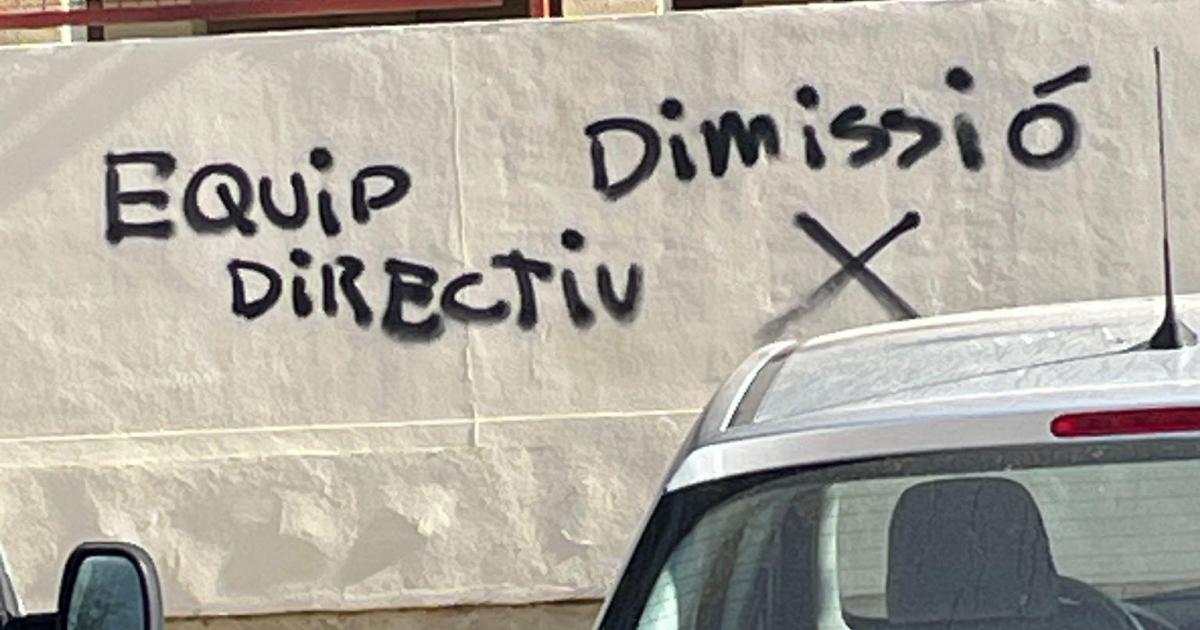 EQUiP
DiRECTiU
DimissiÓ
X